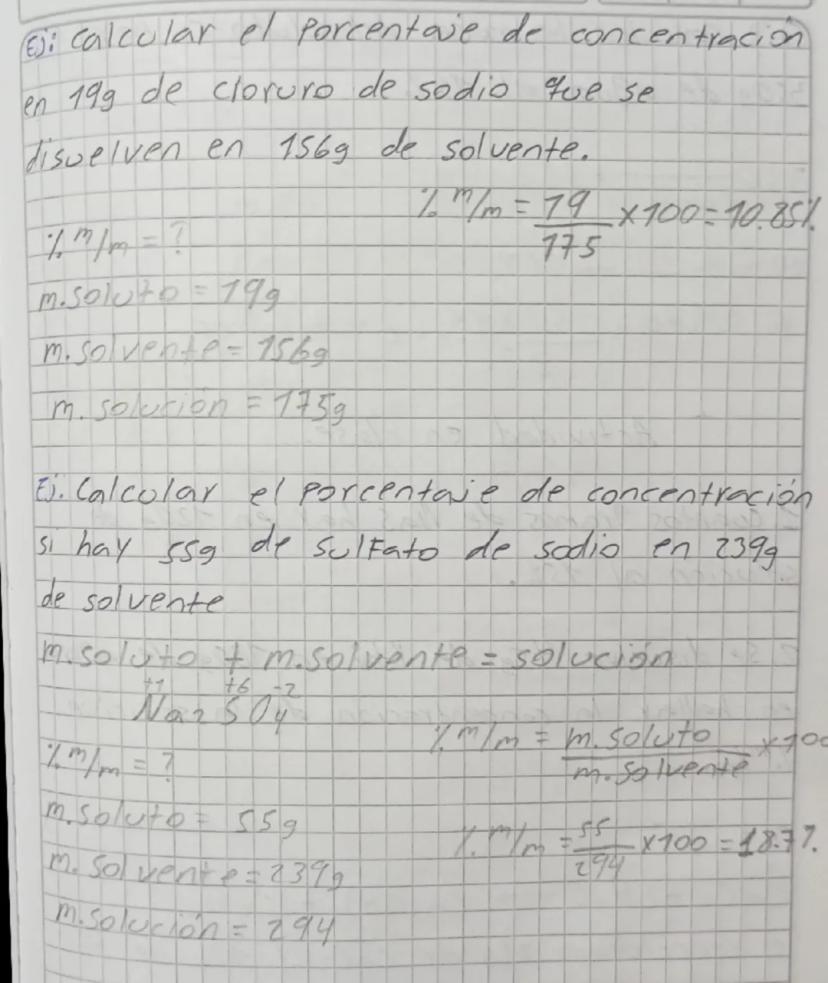 Ej: Calcular el Porcentaje de concentración
en 19g de cloruro de sodio que se
disuelven en 156g de solvente.
% m/m = 19/175 x100 = 10.85%
% m/m = ?
m.soluto = 19g
m.solvente = 156g
m. solución = 175g
Ej. Calcular el Porcentaje de concentración
si hay 55g de Sulfato de sodio en 239g
de solvente
m.soluto + m.solvente = solución
+1 +6 -2
Na2SO4
% m/m = m.soluto/m.solvente x100
% m/m = ?
m.soluto = 55g
% m/m = 55/294 x100 = 18.7%.
m.solvente = 239g
m.solución = 294